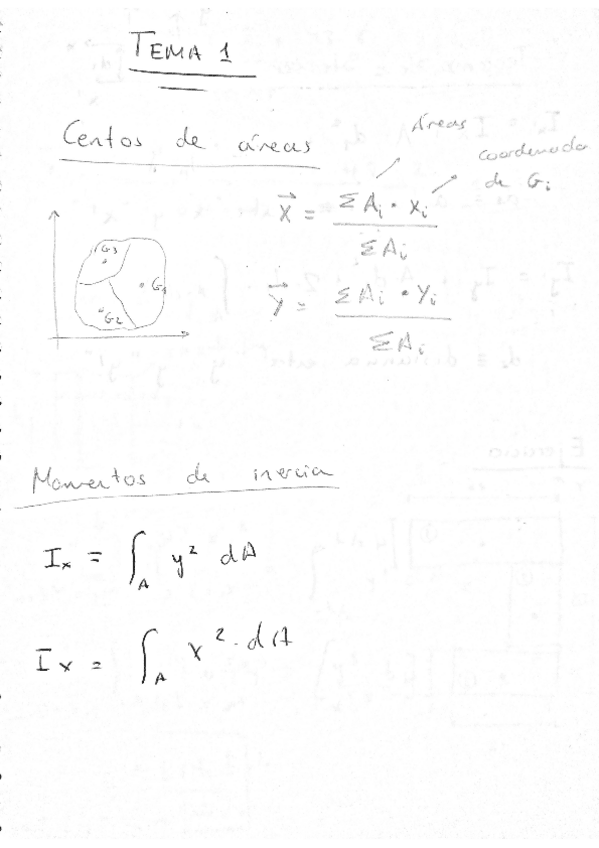 TEMA 1
Centos de áreas
Áreas
Coordenada
de Gi
X = ΣAi · Xi / ΣAi
G3
G1
G2
Y = ΣAi · Yi / ΣAi
Momentos de inercia
Ix = ∫A y² dA
Ix = ∫A x² · dA